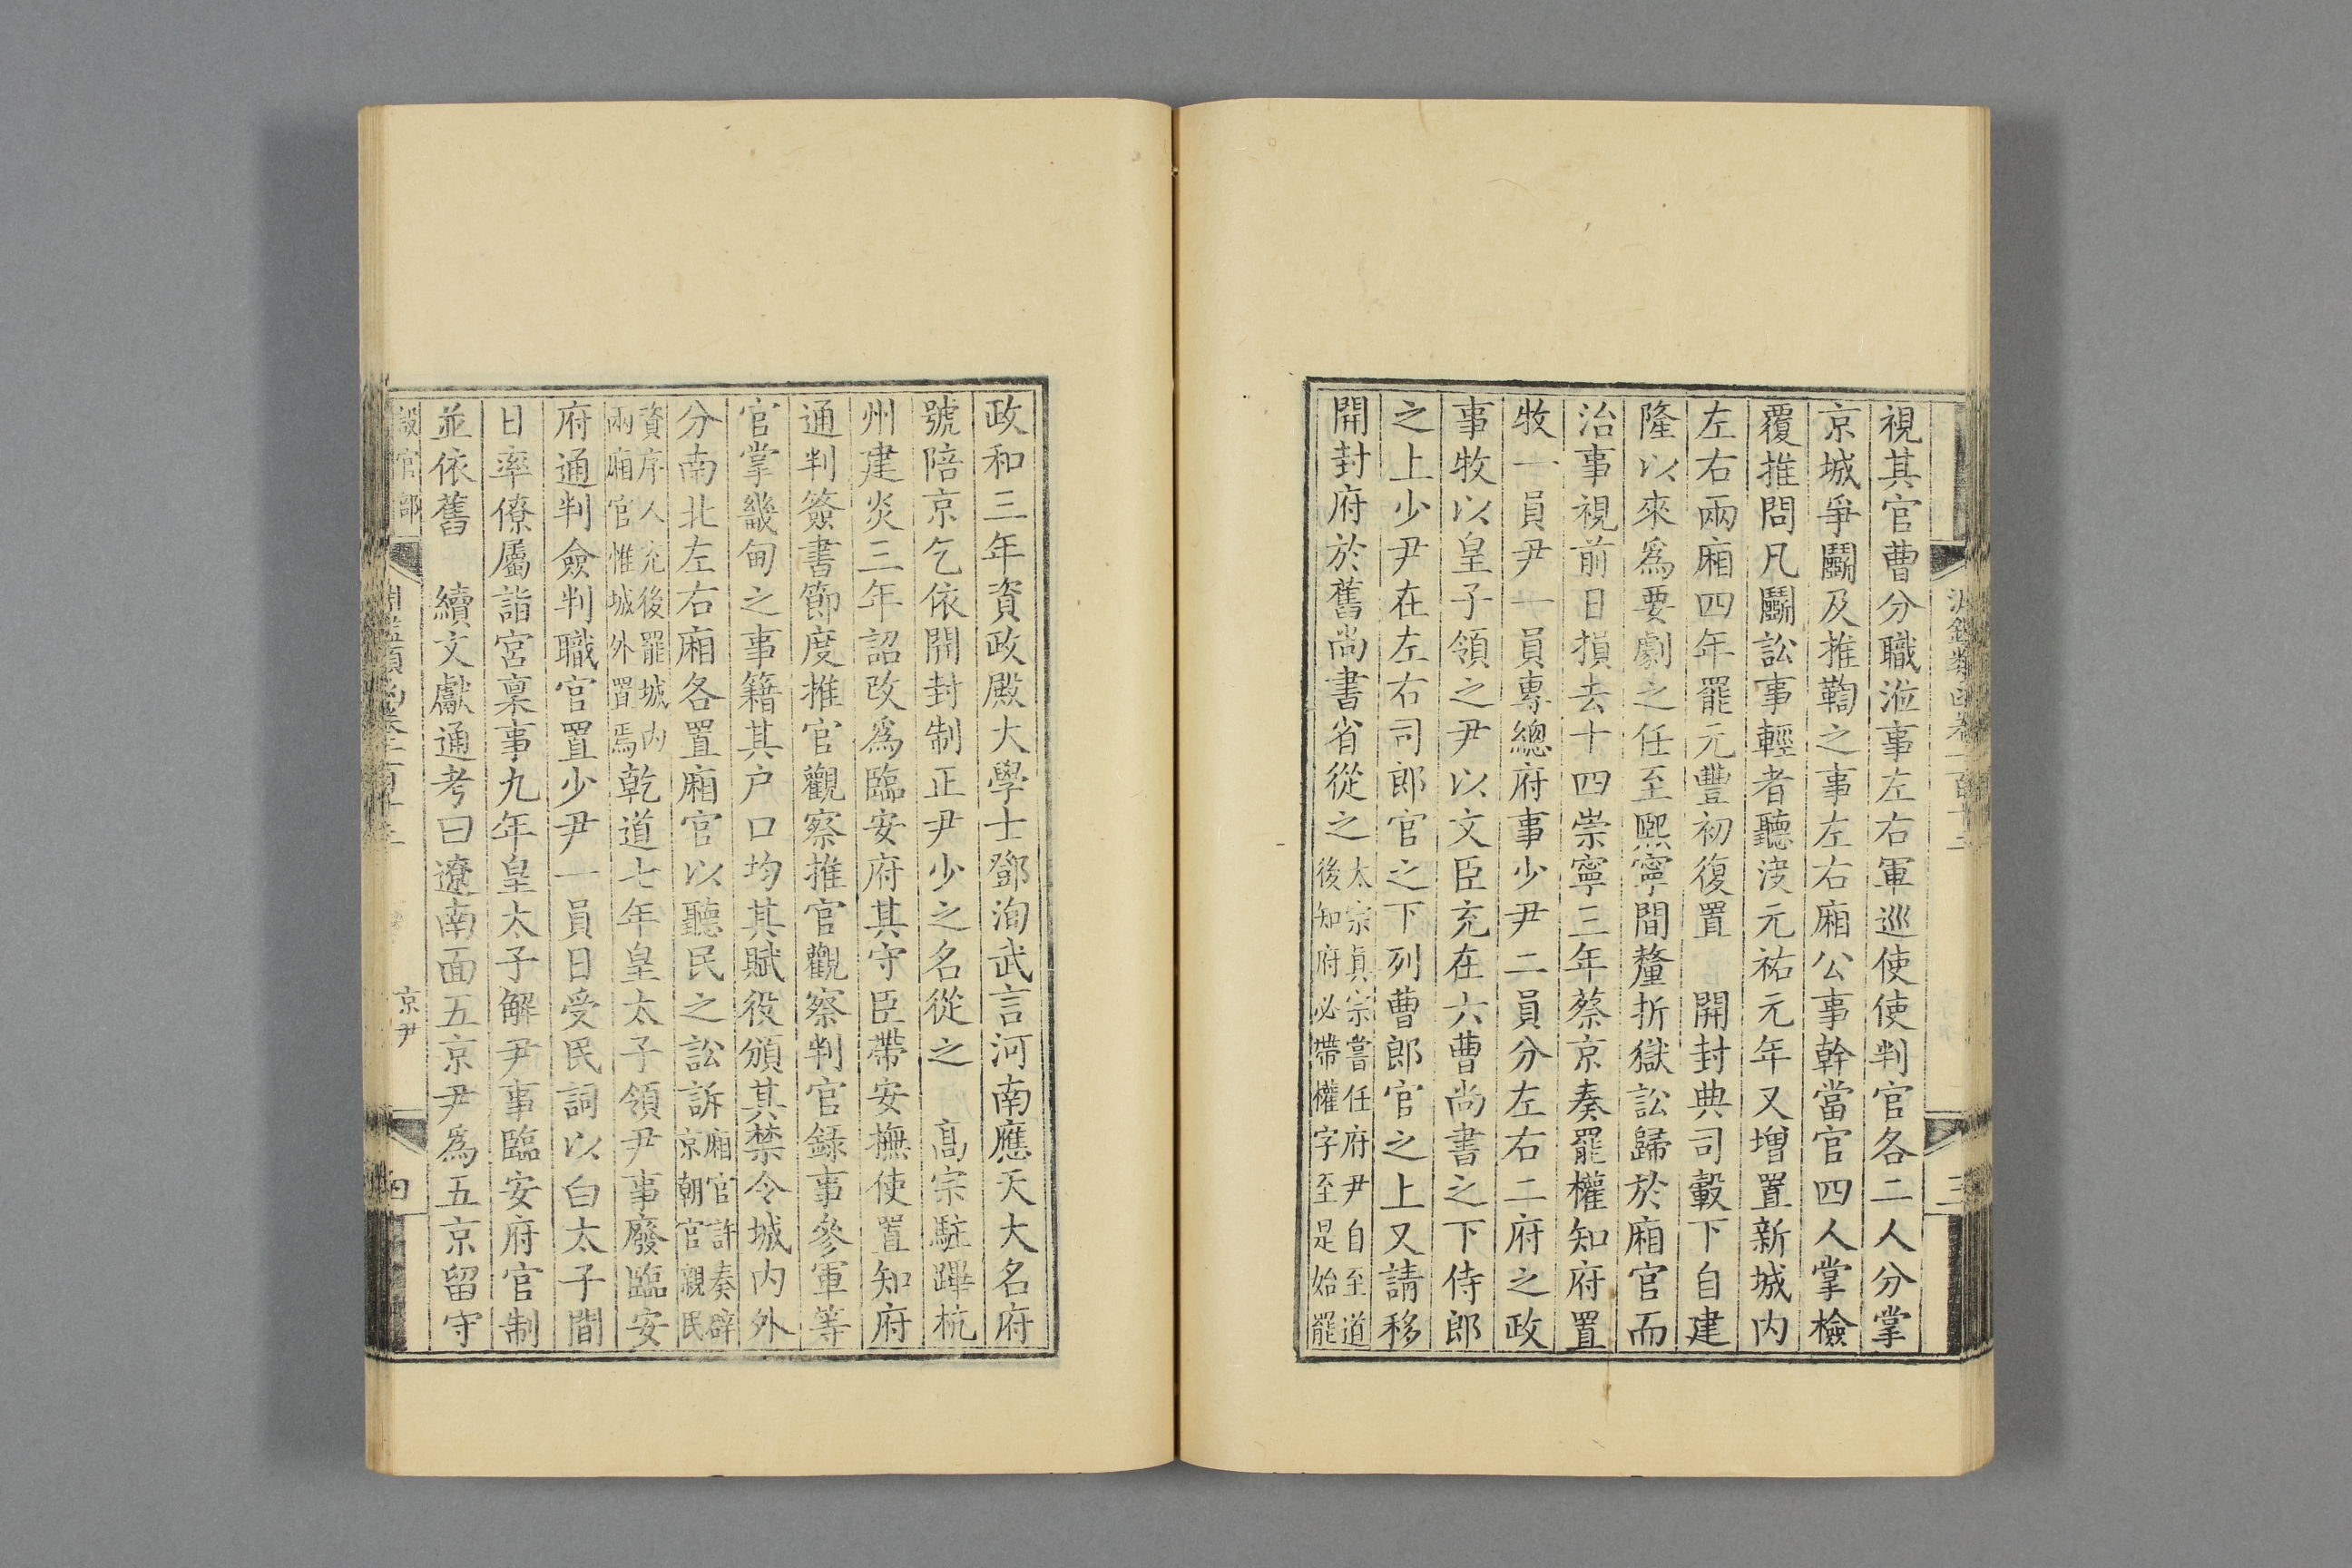 視其官曹分職涖事左右軍巡使使判官各二人分掌
京城爭鬬及推鞫之事左右廂公事幹當官四人掌檢
覆推問凡鬬訟事輕者聽決元祐元年又增置新城內
左右兩廂四年罷元豐初復置　開封典司轂下自建
隆以來爲要劇之任至熙寧間釐折獄訟歸於廂官而
治事視前日損去十四崇寧三年蔡京奏罷權知府置
牧一員尹一員專總府事少尹二員分左右二府之政
事牧以皇子領之尹以文臣充在六曹尚書之下侍郎
之上少尹在左右司郎官之下列曹郎官之上又請移
開封府於舊尚書省從之太宗眞宗嘗任府尹自至道
後知府必帶權字至是始罷
三
政和三年資政殿大學士鄧洵武言河南應天大名府
號陪京乞依開封制正尹少之名從之　高宗駐蹕杭
州建炎三年詔改爲臨安府其守臣帶安撫使置知府
通判簽書節度推官觀察推官觀察判官録事參軍等
官掌畿甸之事籍其户口均其賦役頒其禁令城內外
分南北左右廂各置廂官以聽民之訟訴廂官許奏辟
京朝官親民
資序人充後罷城內
兩廂官惟城外置焉乾道七年皇太子領尹事廢臨安
府通判僉判職官置少尹一員日受民詞以白太子間
日率僚屬詣宮稟事九年皇太子解尹事臨安府官制
並依舊　續文獻通考曰遼南面五京尹爲五京留守
設官部
京尹
四